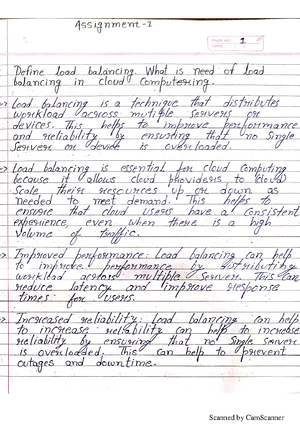 Assignment-1
1
Define load balancing. What is need of load
balancing in cloud Computering.
Load balancing is a technique that distributes
workload across mutiple servers or
devices. This helps to improve performance
and reliability by ensuring that no single
Server or device is overloaded.
Load balancing is essential for cloud computing
because it allows cloud providers to cloud
Scale their resources up or down as
needed to meet demand. This helps to
ensure that cloud users have a consistent
experience, even when there is a high
volume of traffic.
Improved performance: Load balancing can help
to improve performance by distributing
workload across multiple server. This can
reduce latency and improve response
times for users.
Increased reliability: Load balancing can help
to increase reliability can help to increase
reliability by ensuring that no single server
is overloaded. This can help to prevent
outages and downtime.
Scanned by CamScanner